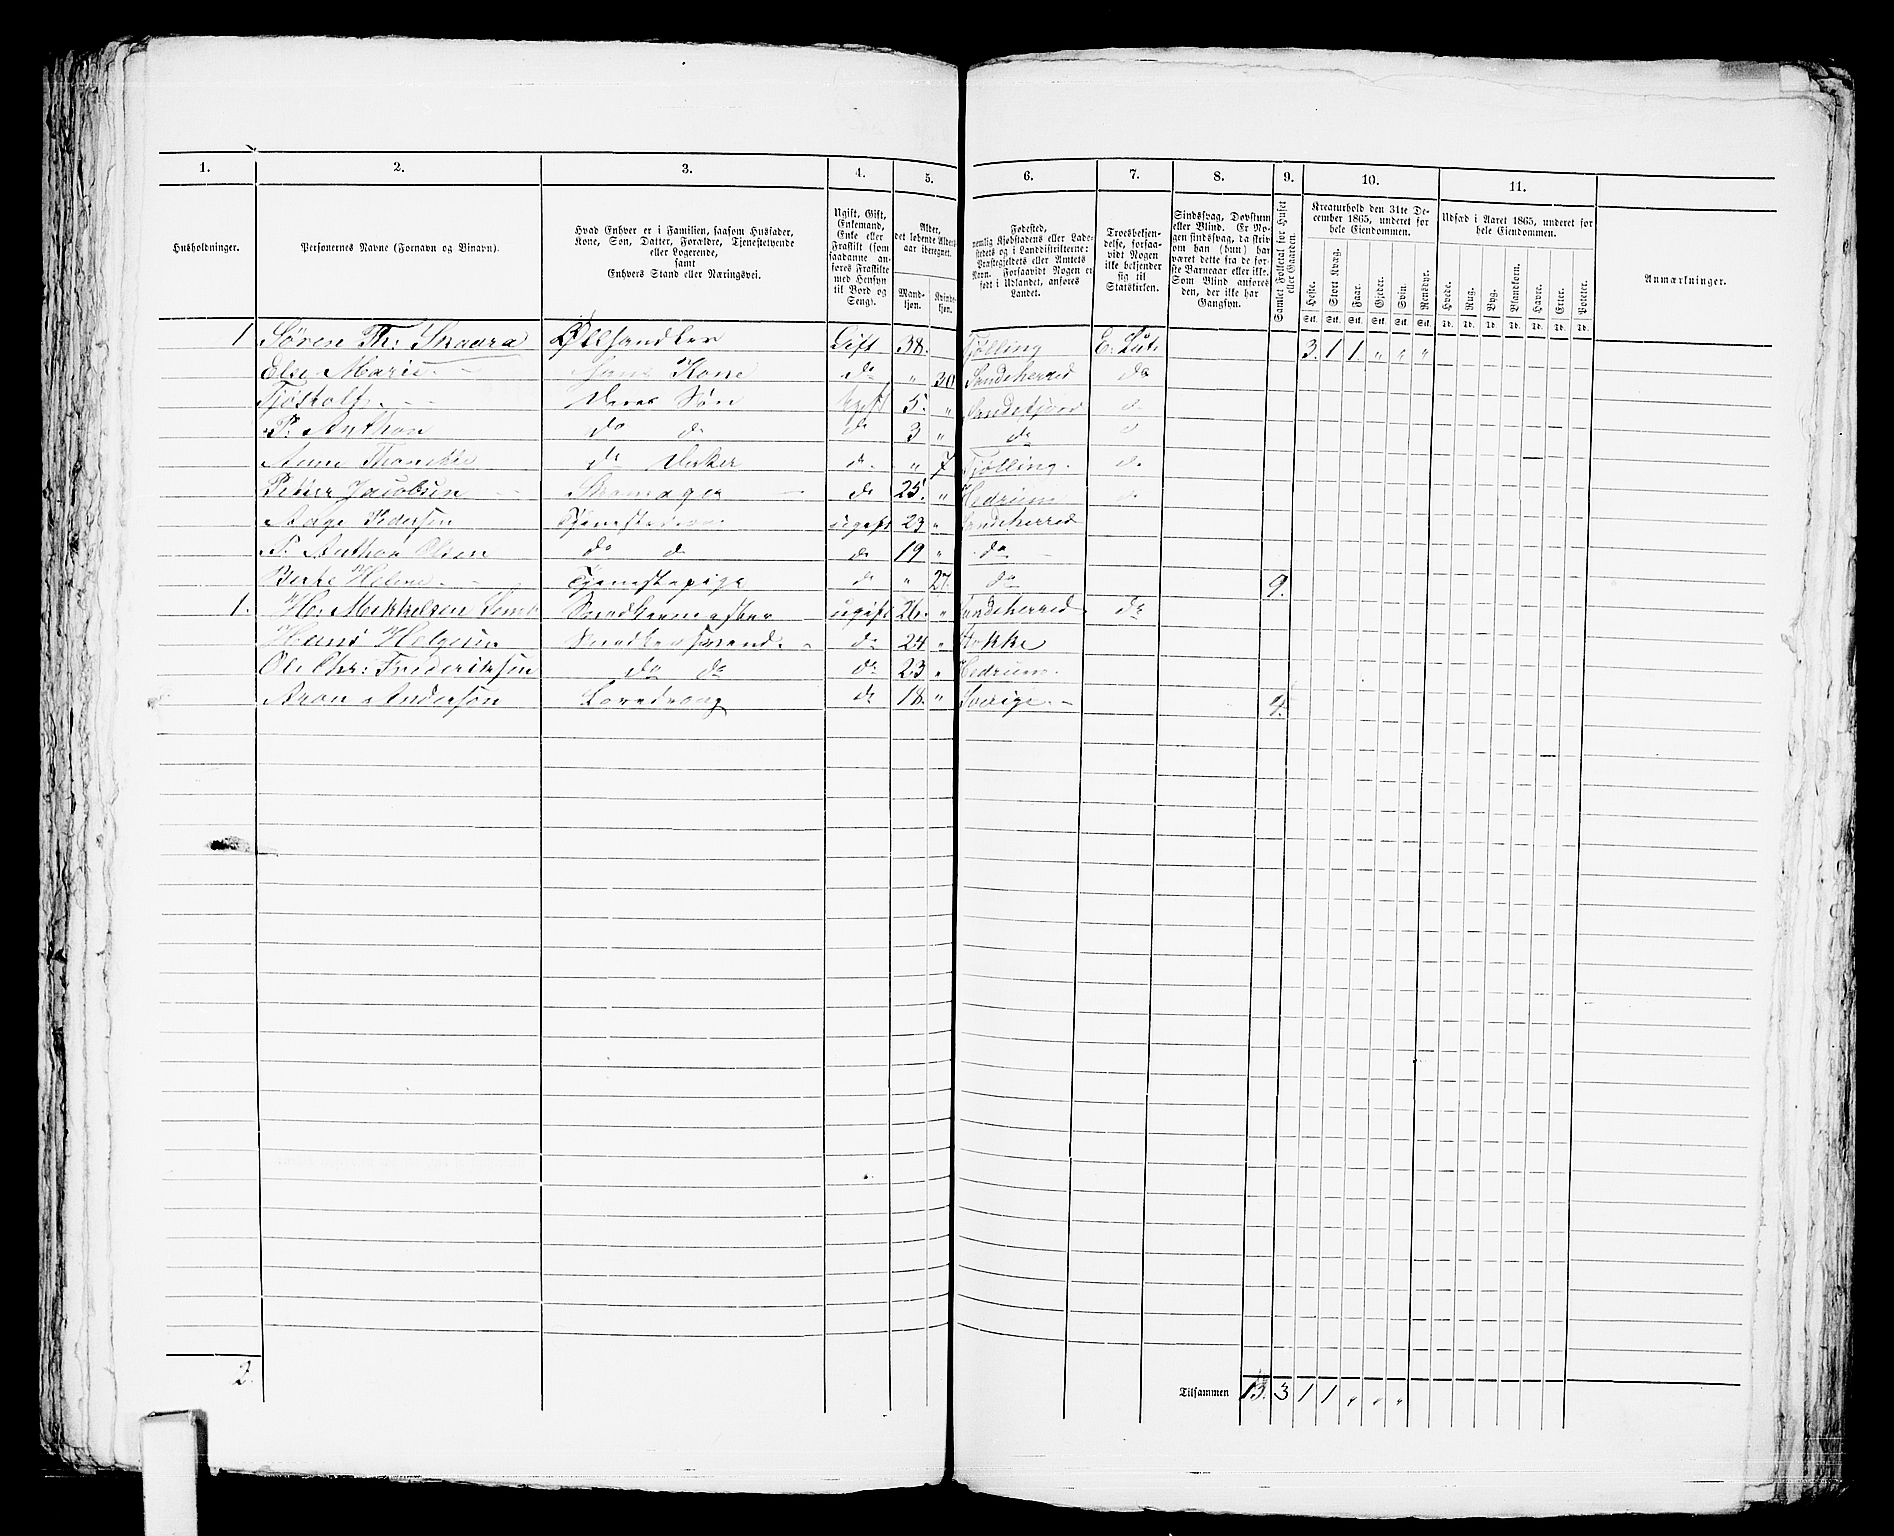 1. 2. 3. 4. 5. 6. 7. 8. 9. 10. 11.
Husholdninger.
Personernes Navne (Fornavn og Binavn).
Hvad Enhver er i Familien, saasom Husfader,
Kone, Søn, Datter, Forældre, Tjenestetyende
eller Logerende,
samt
Enhvers Stand eller Næringsvei.
Ugift, Gift,
Enkemand,
Enke eller
Fraskilt (som
saadanne an-
føres Fraskilte
med Hensyn
til Bord og
Seng).
Alder,
det løbende Alders-
aar iberegnet.
Mand-
kjøn.
Kvinde-
kjøn.
Fødested,
nemlig Kjøbstadens eller Lade-
stedets og i Landdistrikterne:
Præstegjeldets eller Amtets
Navn. Forsaavidt Nogen er
født i Udlandet, anføres
Landet.
Troesbekjen-
delse, forsaa-
vidt Nogen
ikke bekjender
sig til
Statskirken.
Sindssvag, Døvstum
eller Blind. Er No-
gen sindssvag, da skriv
om han (hun) har
været dette fra de før-
ste Barneaar eller ikke.
Som Blind anføres
den, der ikke har
Gangsyn.
Samlet Folketal for Huset
eller Gaarden.
Kreaturhold den 31te De-
cember 1865, underet for
hele Eiendommen.
Heste. Stort Kvæg. Faar. Gjeder. Svin. Rensdyr.
Stk. Stk. Stk. Stk. Stk. Stk.
Udsæd i Aaret 1865, underet for
hele Eiendommen.
Hvede. Rug. Byg. Blandkorn. Havre. Erter. Poteter.
Td. Td. Td. Td. Td. Td. Td.
Anmærkninger.
1 Søren Th: Skaara Ølhandler Gift 38. Tjølling E. Luth 3. 1 1. „ „ „
Else Marie - Hans Kone do „ 30 Sandeherred do
Tjøstolf. - - Deres Søn Ugift 5. „ Sandefjord d
P. Anthon do d do 3 „ do
Anne d. „ 7 Tjølling. d.
Petter Jacobsen - Skomager - d 25. „ Hedrum d
Pedersen ugift 23 „ Sandeherred
P. Anthon Olsen do d d 19 „ do -
Berte Helene. - Tjenestepige d „ 27. do 9.
1. H. Mikkelsen Snedkermester ugift 26. „ Sandeherred do
Hans Helgesen Snedkersvend. - d 24 „ Stokke
Ole Chr: Frederiksen do do do 23 „ Hedrum.
Aron Andersen Læredreng d 18. „ Sverige. - 4.
2. Tilsammen 13. 3 1 1 „ „ „